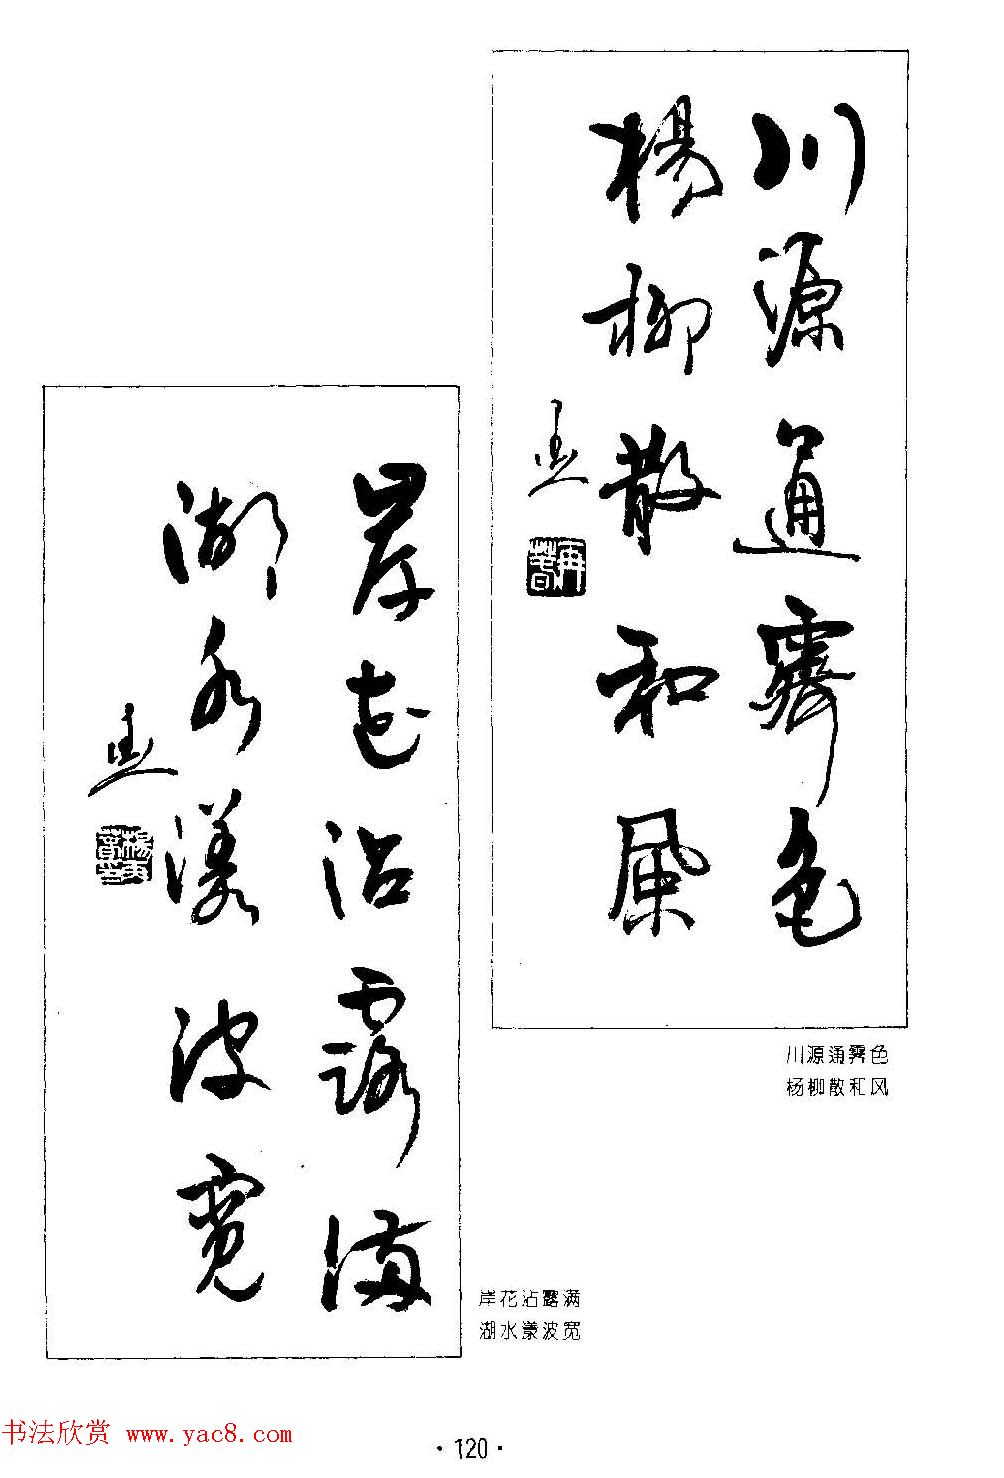 川源通霽色
楊柳散和風
再春
川源通霁色
杨柳散和风
岸花沾露满
湖水漾波寬
岸花沾露满
湖水漾波宽
书法欣赏 www.yac8.com
·120·